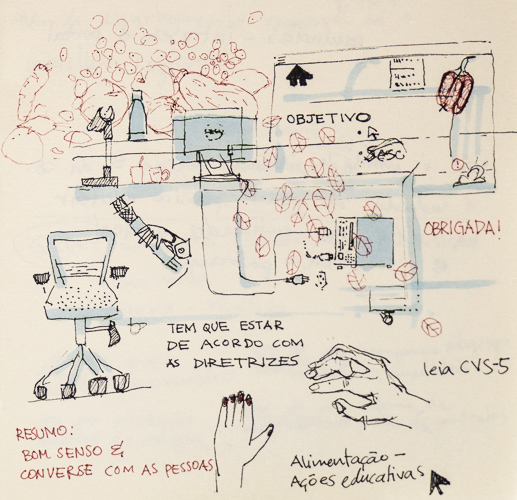 OBJETIVO
Sesc
OBRIGADA!
TEM QUE ESTAR
DE ACORDO COM
AS DIRETRIZES
leia CVS-5
RESUMO:
BOM SENSO &
CONVERSE COM AS PESSOAS
Alimentação –
Ações educativas